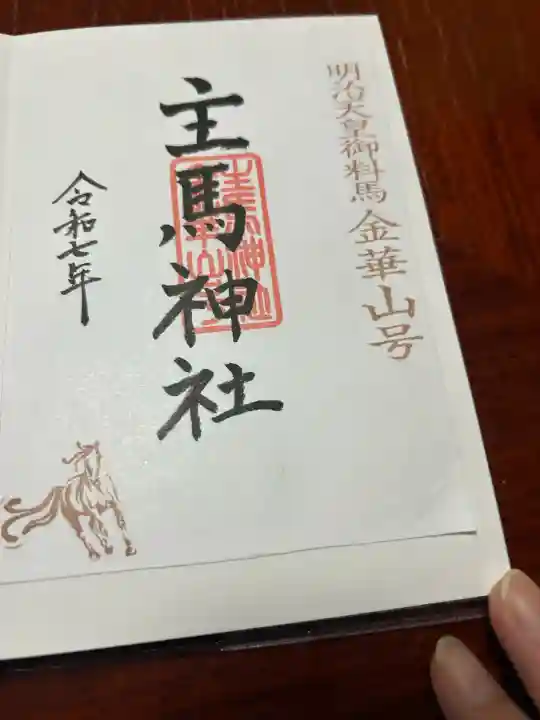 明治天皇御料馬 金華山号
主馬神社
令和七年